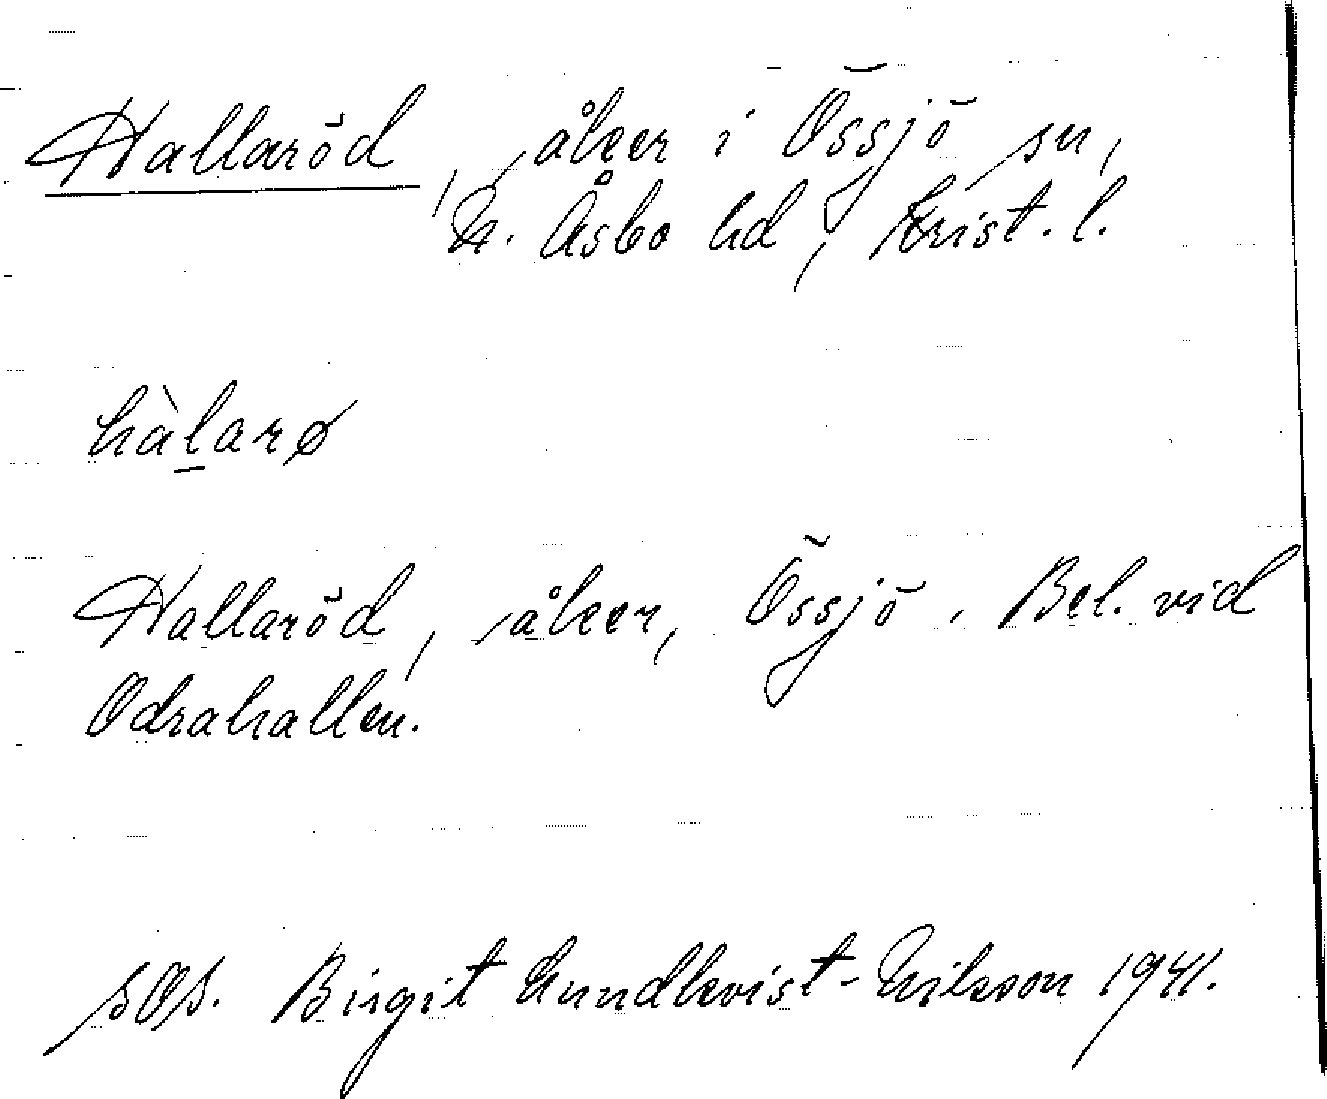 Hallaröd, åker i Össjö sn,
N. Åsbo hd, Krist. l.
hàlarø
Hallaröd, åker, Össjö. Bel. vid
Odrahallen.
SOS. Birgit Lundkvist-Nilsson 1941.